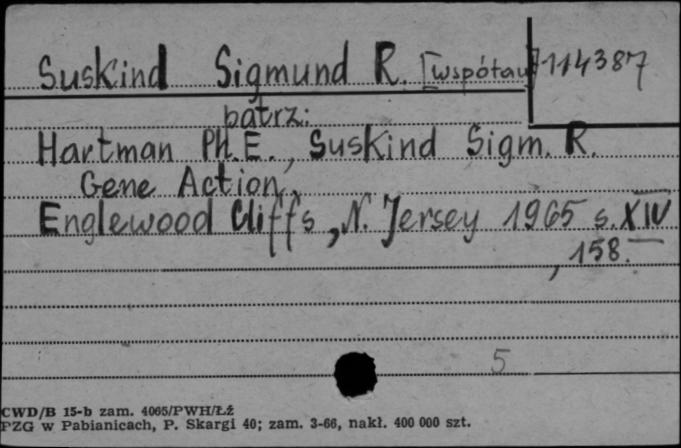 Suskind Sigmund R. [współau] 114387
patrz:
Hartman Ph. E., Suskind Sigm. R.
Gene Action.
Englewood Cliffs, N. Jersey 1965 s. XIV
, 158.
5
CWD/B 15-b zam. 4065/PWH/Łź
PZG w Pabianicach, P. Skargi 40; zam. 3-66, nakł. 400 000 szt.